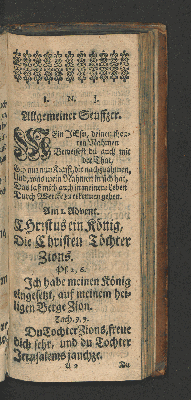 I. N. J.
Allgemeiner Seuffzer.
Mein JEsu, deinen theu-
ren Nahmen
Beweisest du auch mit
der That,
Gib mir nun Krafft, dir nachzuahmen,
Und, was mein Nahmen in sich hat,
Das laß mich auch in meinem Leben
Durch Wercke zu erkennen geben.
Am 1. Advent.
CHristus ein König,
Die Christen Tochter
Zions.
Ps. 2, 6.
Ich habe meinen König
eingesetzt, auf meinem hei-
ligen Berge Zion.
Zach. 9, 9.
Du Tochter Zions, freue
dich sehr, und du Tochter
Jerusalems jauchze.